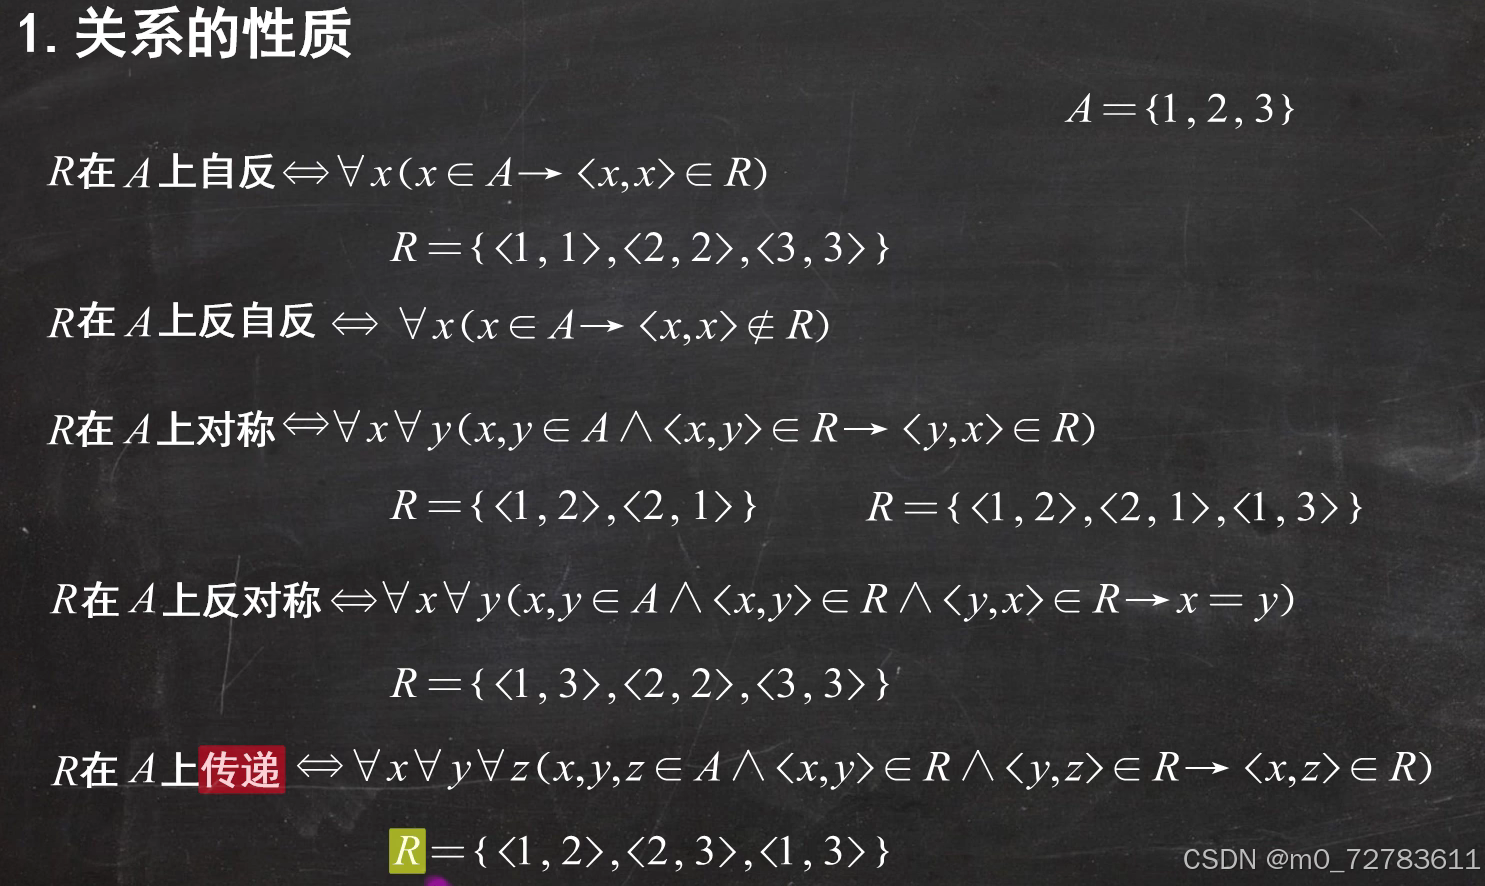 1. 关系的性质
A={1,2,3}
R在 A上自反⇔∀x(x∈A→<x,x>∈R)
R={<1,1>,<2,2>,<3,3>}
R在 A上反自反 ⇔ ∀x(x∈A→<x,x>∉R)
R在 A上对称⇔∀x∀y(x,y∈A∧<x,y>∈R→<y,x>∈R)
R={<1,2>,<2,1>} R={<1,2>,<2,1>,<1,3>}
R在 A上反对称⇔∀x∀y(x,y∈A∧<x,y>∈R∧<y,x>∈R→x=y)
R={<1,3>,<2,2>,<3,3>}
R在 A上传递 ⇔∀x∀y∀z(x,y,z∈A∧<x,y>∈R∧<y,z>∈R→<x,z>∈R)
R={<1,2>,<2,3>,<1,3>}
CSDN @m0_72783611